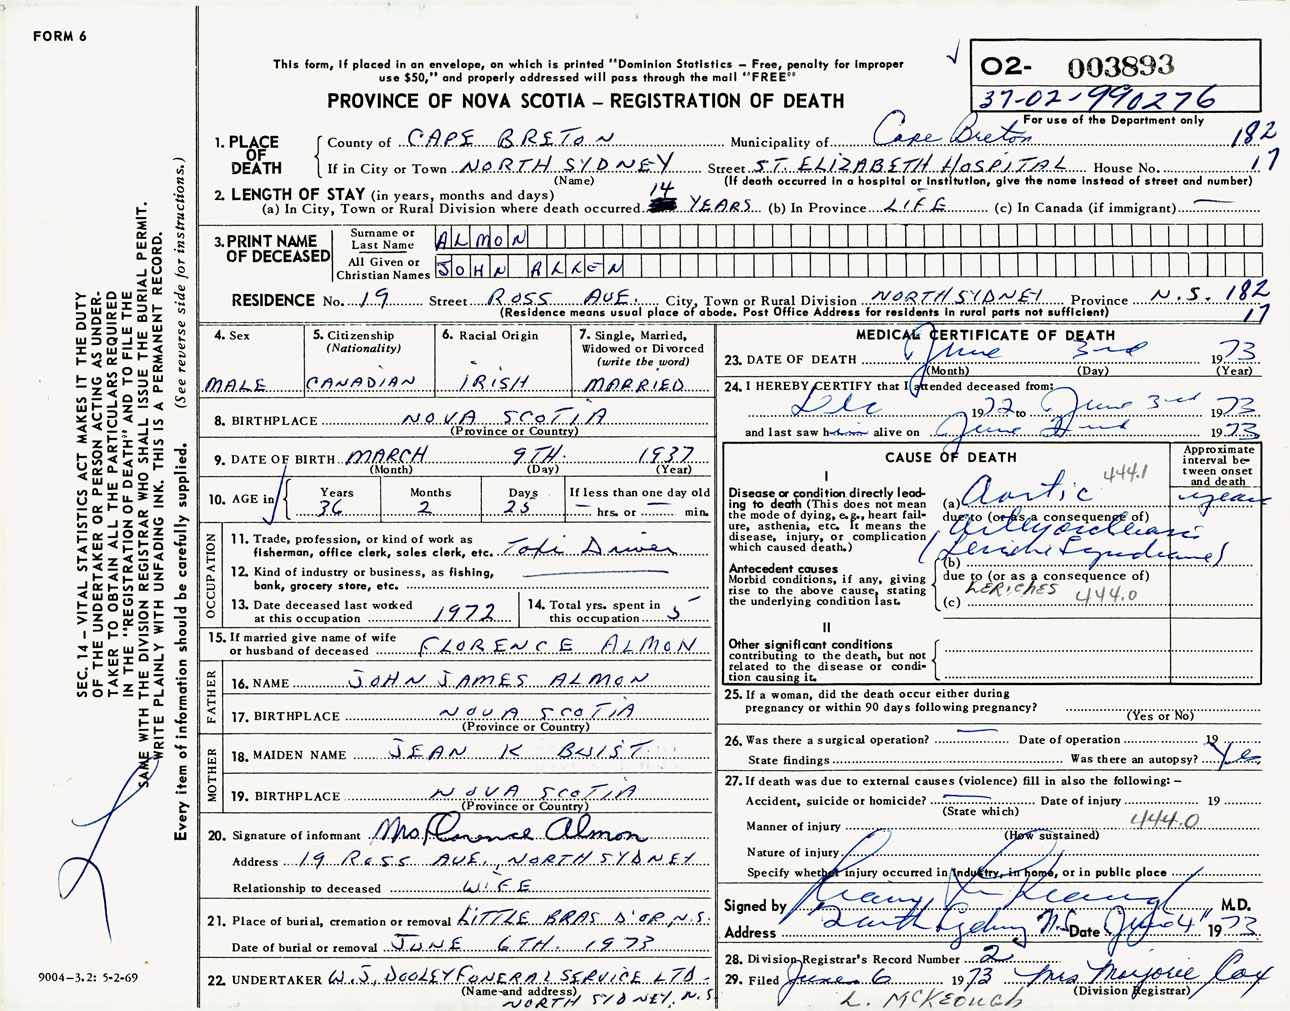 FORM 6
This form, if placed in an envelope, on which is printed "Dominion Statistics – Free, penalty for improper
use $50," and properly addressed will pass through the mail "FREE"
PROVINCE OF NOVA SCOTIA – REGISTRATION OF DEATH
O2- 003893
37-02-990276
For use of the Department only
1. PLACE OF DEATH
County of CAPE BRETON Municipality of Cape Breton 182
If in City or Town NORTH SYDNEY Street ST. ELIZABETH HOSPITAL House No. 17
(Name) (If death occurred in a hospital or institution, give the name instead of street and number)
2. LENGTH OF STAY (in years, months and days)
(a) In City, Town or Rural Division where death occurred 14 YEARS (b) In Province LIFE (c) In Canada (if immigrant) —
3. PRINT NAME OF DECEASED
Surname or Last Name ALMON
All Given or Christian Names JOHN ALLEN
RESIDENCE No. 19 Street ROSS AVE. City, Town or Rural Division NORTH SYDNEY Province N.S. 182
(Residence means usual place of abode. Post Office Address for residents in rural parts not sufficient) 17
4. Sex
MALE
5. Citizenship (Nationality)
CANADIAN
6. Racial Origin
IRISH
7. Single, Married, Widowed or Divorced (write the word)
MARRIED
8. BIRTHPLACE NOVA SCOTIA
(Province or Country)
9. DATE OF BIRTH MARCH 9TH. 1937
(Month) (Day) (Year)
10. AGE in Years 36 Months 2 Days 25 If less than one day old — hrs. or — min.
OCCUPATION
11. Trade, profession, or kind of work as
fisherman, office clerk, sales clerk, etc. Taxi Driver
12. Kind of industry or business, as fishing,
bank, grocery store, etc.
13. Date deceased last worked
at this occupation 1972
14. Total yrs. spent in
this occupation 5
15. If married give name of wife
or husband of deceased FLORENCE ALMON
FATHER
16. NAME JOHN JAMES ALMON
17. BIRTHPLACE NOVA SCOTIA
(Province or Country)
MOTHER
18. MAIDEN NAME JEAN K BUIST
19. BIRTHPLACE NOVA SCOTIA
(Province or Country)
20. Signature of informant Mrs. Florence Almon
Address 19 ROSS AVE., NORTH SYDNEY
Relationship to deceased WIFE
21. Place of burial, cremation or removal LITTLE BRAS D'OR, N.S.
Date of burial or removal JUNE 6TH. 1973
22. UNDERTAKER W.J. DOOLEY FUNERAL SERVICE LTD -
(Name and address) NORTH SYDNEY, N.S.
MEDICAL CERTIFICATE OF DEATH
23. DATE OF DEATH June 3rd 1973
(Month) (Day) (Year)
24. I HEREBY CERTIFY that I attended deceased from:
Dec 1972 to June 3rd 1973
and last saw him alive on June 2nd 1973
CAUSE OF DEATH
Approximate interval between onset and death
I
444.1
Disease or condition directly leading to death (This does not mean the mode of dying, e.g., heart failure, asthenia, etc. It means the disease, injury, or complication which caused death.)
(a) Aortic years
due to (or as a consequence of)
(Leriche Syndrome)
(b)
Antecedent causes
Morbid conditions, if any, giving rise to the above cause, stating the underlying condition last.
due to (or as a consequence of)
LERICHES 444.0
(c)
II
Other significant conditions
contributing to the death, but not related to the disease or condition causing it.
25. If a woman, did the death occur either during
pregnancy or within 90 days following pregnancy?
(Yes or No)
26. Was there a surgical operation? — Date of operation 19
State findings Was there an autopsy? Yes
27. If death was due to external causes (violence) fill in also the following: –
Accident, suicide or homicide? — Date of injury 19
(State which)
444.0
Manner of injury
(How sustained)
Nature of injury
Specify whether injury occurred in Industry, in home, or in public place
Signed by M.D.
Address North Sydney N.S. Date June 4" 1973
28. Division Registrar's Record Number 2
29. Filed June 6 1973 Mrs Marjorie Cox
(Division Registrar)
L. MCKEOUGH
SEC. 14 – VITAL STATISTICS ACT MAKES IT THE DUTY
OF THE UNDERTAKER OR PERSON ACTING AS UNDER-
TAKER TO OBTAIN ALL THE PARTICULARS REQUIRED
IN THE "REGISTRATION OF DEATH" AND TO FILE THE
SAME WITH THE DIVISION REGISTRAR WHO SHALL ISSUE THE BURIAL PERMIT.
WRITE PLAINLY WITH UNFADING INK. THIS IS A PERMANENT RECORD.
Every item of information should be carefully supplied. (See reverse side for instructions.)
9004-3.2: 5-2-69